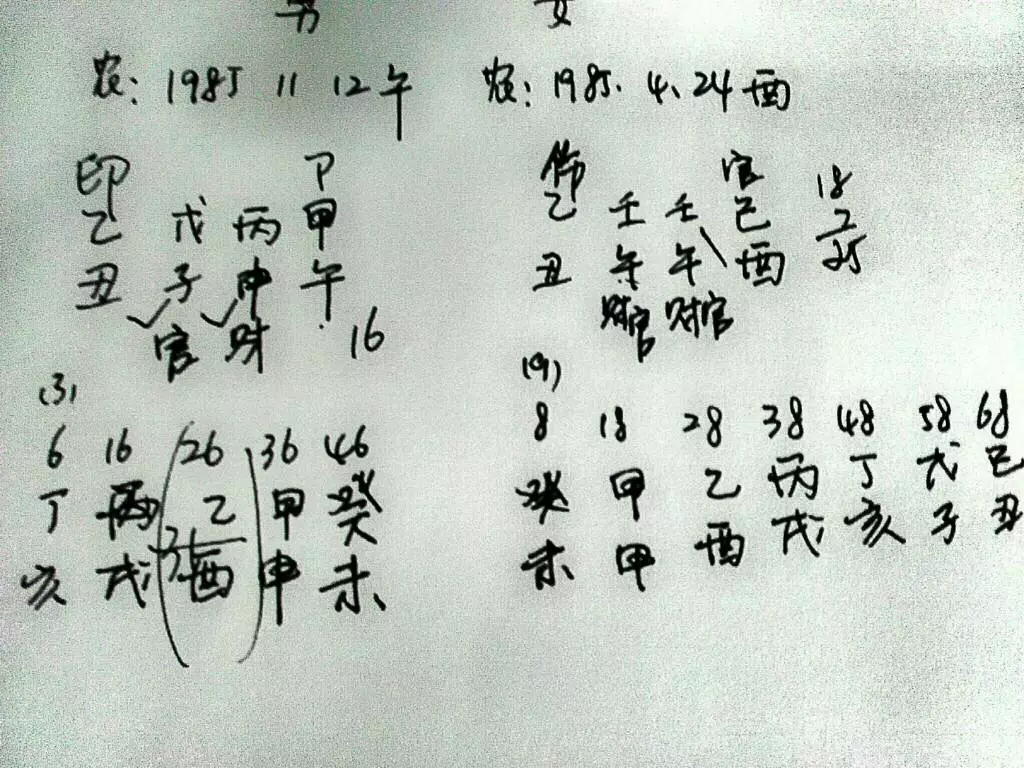 男 女
农：1985 11 12午 农：1985.4.24酉
印 P 伤 官 18
乙 戊 丙 甲 乙 壬 壬 己 7
丑 子 申 午 丑 午 午 酉 25
官 财 16 财官 财官
(3) (9)
6 16 26 36 46 8 18 28 38 48 58 68
丁 丙 乙 甲 癸 癸 甲 乙 丙 丁 戊 己
亥 戌 酉 申 未 未 申 酉 戌 亥 子 丑